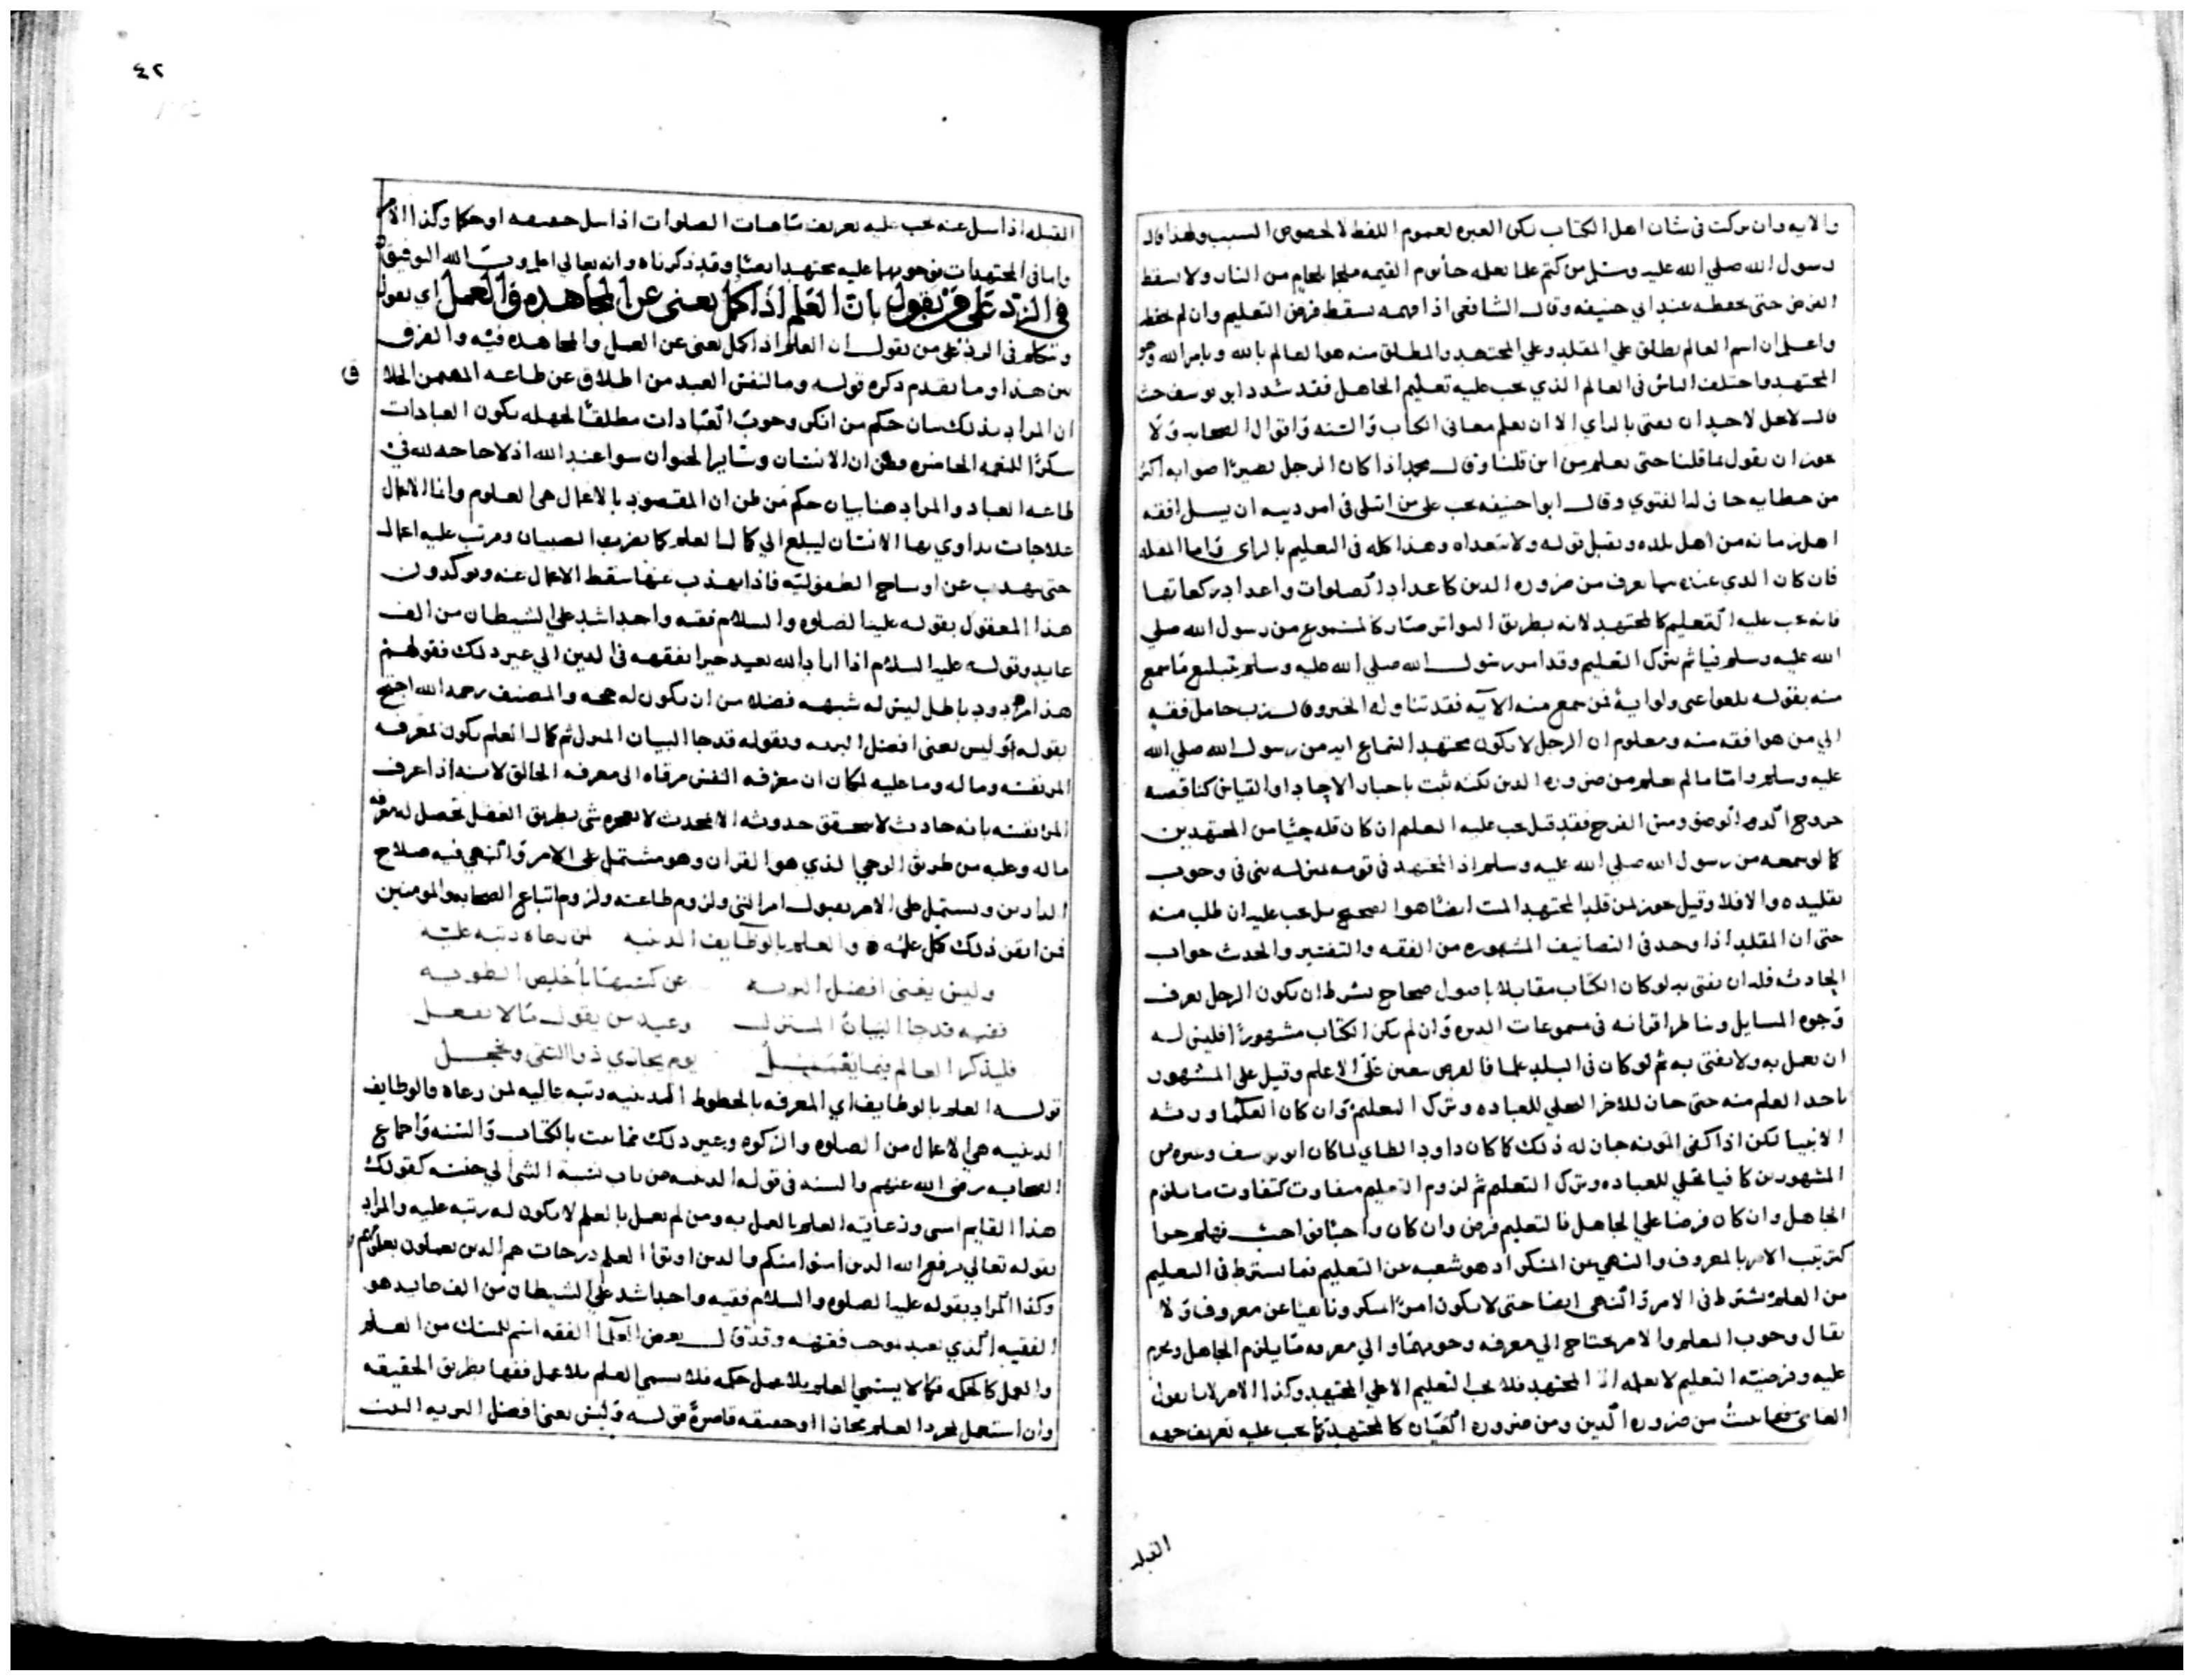 والايه وان نزلت في شان اهل الكتاب لكن العبره لعموم اللفظ لا لخصوص السبب ولهذا قال
رسول الله صلي الله عليه وسلم من كتم علما يعلمه جا يوم القيمه ملجما بلجام من النار ولا يسقط
الفرض حتي يحفظه عند ابي حنيفه وقال الشافعي اذا فهمه يسقط فرض التعليم وان لم يحفظ
واعلم ان اسم العالم يطلق علي المقلد وعلي المجتهد والمطلق منه هو العالم بالله وبامر الله وهو
المجتهد واختلف الناس في العالم الذي يجب عليه تعليم الجاهل فقد شدد ابو يوسف حيث
قال لا يحل لاحد ان يفتي بالراي الا ان يعلم معاني الكتاب والسنه واقوال الصحابه ولا
يجوز ان يقول بما قلنا حتي يعلم من اين قلنا وقال محمد اذا كان الرجل بصيرا صوابه اكثر
من خطايه جاز له الفتوي وقال ابو حنيفه يجب علي من ابتلي في امر دينه ان يسل افقه
اهل زمانه من اهل بلده ويقبل قوله ولا يتعداه وهذا كله في التعليم بالراي واما المقلد
فان كان الذي عنده مما يعرف من ضروره الدين كاعداد الصلوات واعداد ركعاتها
فانه يجب عليه التعليم كالمجتهد لانه بطريق التواتر صار كالمسموع من رسول الله صلي
الله عليه وسلم فياثم بترك التعليم وقد امر رسول الله صلي الله عليه وسلم بتبليغ ما سمع
منه بقوله بلغوا عني ولو اية فمن سمع منه الآيه فقد تناوله الخبر وقال رب حامل فقه
الي من هو افقه منه ومعلوم ان الرجل لا يكون مجتهدا بسماع ايه من رسول الله صلي الله
عليه وسلم واما ما لم يعلم من ضروره الدين لكنه ثبت باخبار الاحاد او القياس كناقضيه
خروج الدم الوضو ومس الفرج فقد قيل يجب عليه التعليم ان كان قلد حيا من المجتهدين
كالو سمعه من رسول الله صلي الله عليه وسلم اذ المجتهد في قومه بمنزله نبي في وجوب
تقليده والا فلا وقيل يجوز لمن قلد المجتهد الميت ايضا هو الصحيح بل يجب عليه ان طلب منه
حتي ان المقلد اذا وجد في التصانيف المشهوره من الفقه والتفسير والحديث جواب
الحادثه فله ان يفتي به لو كان الكتاب مقابلا باصول صحاح بشرط ان يكون الرجل يعرف
وجوه المسايل ويناظر اقرانه في مسموعات الدين وان لم يكن الكتاب مشهورا فليس له
ان يعمل به ولا يفتي به ثم لو كان في البلد علما فالفرض يتعين علي الاعلم وقيل علي المشهور
باخذ العلم منه حتي جاز للاخر التخلي للعباده وترك التعليم وان كان العلما ورثه
الانبيا لكن اذا كفي المونه جاز له ذلك كما كان داود الطاي لما كان ابو يوسف وغيره من
المشهورين كافيا تخلي للعباده وترك التعليم ثم لزوم التعليم متفاوت كتفاوت ما يلزم
الجاهل وان كان فرضا علي الجاهل فالتعليم فرض وان كان واجبا فواجب فهلم جرا
كترتب الامر بالمعروف والنهي عن المنكر اذ هو شعبه عن التعليم فما يشترط في التعليم
من العلم يشترط في الامر والنهي ايضا حتي لا يكون امرا بمنكر وناهيا عن معروف ولا
يقال وجوب التعليم والامر يحتاج الي معرفه وجوبها والي معرفه ما يلزم الجاهل ويحرم
عليه وفرضيه التعليم لا يعلمه الا المجتهد فلا يجب التعليم الا علي المجتهد وكذا الامر لانا نقول
العامي فيما يثبت من ضروره الدين ومن ضروره العيان كالمجتهد كما يجب عليه تعريف جهه
القبله
٤٢
القبله اذا سل عنه يجب عليه تعريف شاهدات الصلوات اذا سل حقيقه او حكما وكذا الامر
واما في المجتهدات فوجوبهما عليه مجتهدا بعينا وقد ذكرناه وانه تعالي اعلم وبالله التوفيق
في الرد علي من يقول بان العلم اذا كمل يغني عن المجاهده في العمل اي يقول
ونتكلم في الرد علي من يقول ان العلم اذا كمل يغني عن العمل والمجاهده فيه والفرق
بين هذا وما تقدم ذكره قوله وما لنفس العبد من اطلاق عن طاعه المهيمن الخلا ق
ان المراد بذلك بيان حكم من انكر وجوب العبادات مطلقا لجهله بكون العبادات
شكرا للنعمه الحاضره وظن ان الانسان وساير الحيوان سوا عند الله اذ لا حاجه لله في
طاعه العباد والمراد هنا بيان حكم من ظن ان المقصود بالاعمال هي العلوم وانما الاعمال
علاجات يداوي بها الانسان ليبلغ الي كمال العلم كما يضرب الصبيان ويرتب عليه اعمال
حتي يهذب عن اوساخ الطفوليه فاذا تهذب عنها سقط الاعمال عنه ويوكدون
هذا المعقول بقوله عليه الصلوه والسلام فقيه واحد اشد علي الشيطان من الف
عابد وقوله عليه السلام اذا اراد الله بعبد خيرا يفقهه في الدين الي غير ذلك فقولهم
هذا مردود باطل ليس له شبهه فضلا من ان يكون له حجه والمصنف رحمه الله احتج
بقوله وليس يغني افضل البريه وبقوله قد جا البيان المنزل ثم كمال العلم يكون بمعرفه
المر نفسه وما له وما عليه لمكان ان معرفه النفس مرقاه الي معرفه الخالق لانه اذا عرف
المر نفسه بانه حادث لا يتحقق حدوثه الا بمحدث لا يعجزه شي بطريق الفضل تحصل له معرفه
ما له وعليه من طريق الوحي الذي هو القران وهو مشتمل علي الامر والنهي فيه صلاح
الدارين ويشتمل علي الامر بقبول امر النبي ولزوم طاعته ولزوم اتباع الصحابه والمومنين
فمن اتقن ذلك كمل علمه ه والعلم بالوظايف الدينيه لمن رعاه رتبه عليه
وليس يغني افضل البريه عن كسبها باخلص الطويه
فقيه قد جا البيان المنزل وعيد من يقول ما لا يفعل
فليذكر العالم فيما يعمل يوم يجازي ذو التقي ويخجل
قوله العلم بالوظايف اي المعرفه بالخطوط الدينيه رتبه عاليه لمن رعاه والوظايف
الدينيه هي الاعمال من الصلوه والزكوه وغير ذلك مما يثبت بالكتاب والسنه واجماع
الصحابه رضي الله عنهم والنسبه في قوله الدينيه من باب نسبه الشي الي جنسه كقولك
هذا القايم انسي ورعايه العلم بالعمل به ومن لم يعمل بالعلم لا يكون له رتبه عليه والمراد
بقوله تعالي يرفع الله الذين امنوا منكم والذين اوتوا العلم درجات هم الذين يعملون بعلمهم
وكذا المراد بقوله عليه الصلوه والسلام فقيه واحد اشد علي الشيطان من الف عابد هو
الفقيه الذي يعبد بموجب فقهه وقد قال بعض العلما الفقه اسم للمسك من العلم
والعمل كالحكمه فكما لا يسمي العلم بلا عمل حكمه فلا يسمي العلم بلا عمل فقها بطريق الحقيقه
وان استعمل لمجرد العلم مجازا او حقيقه قاصره قوله وليس يغني افضل البريه البيت